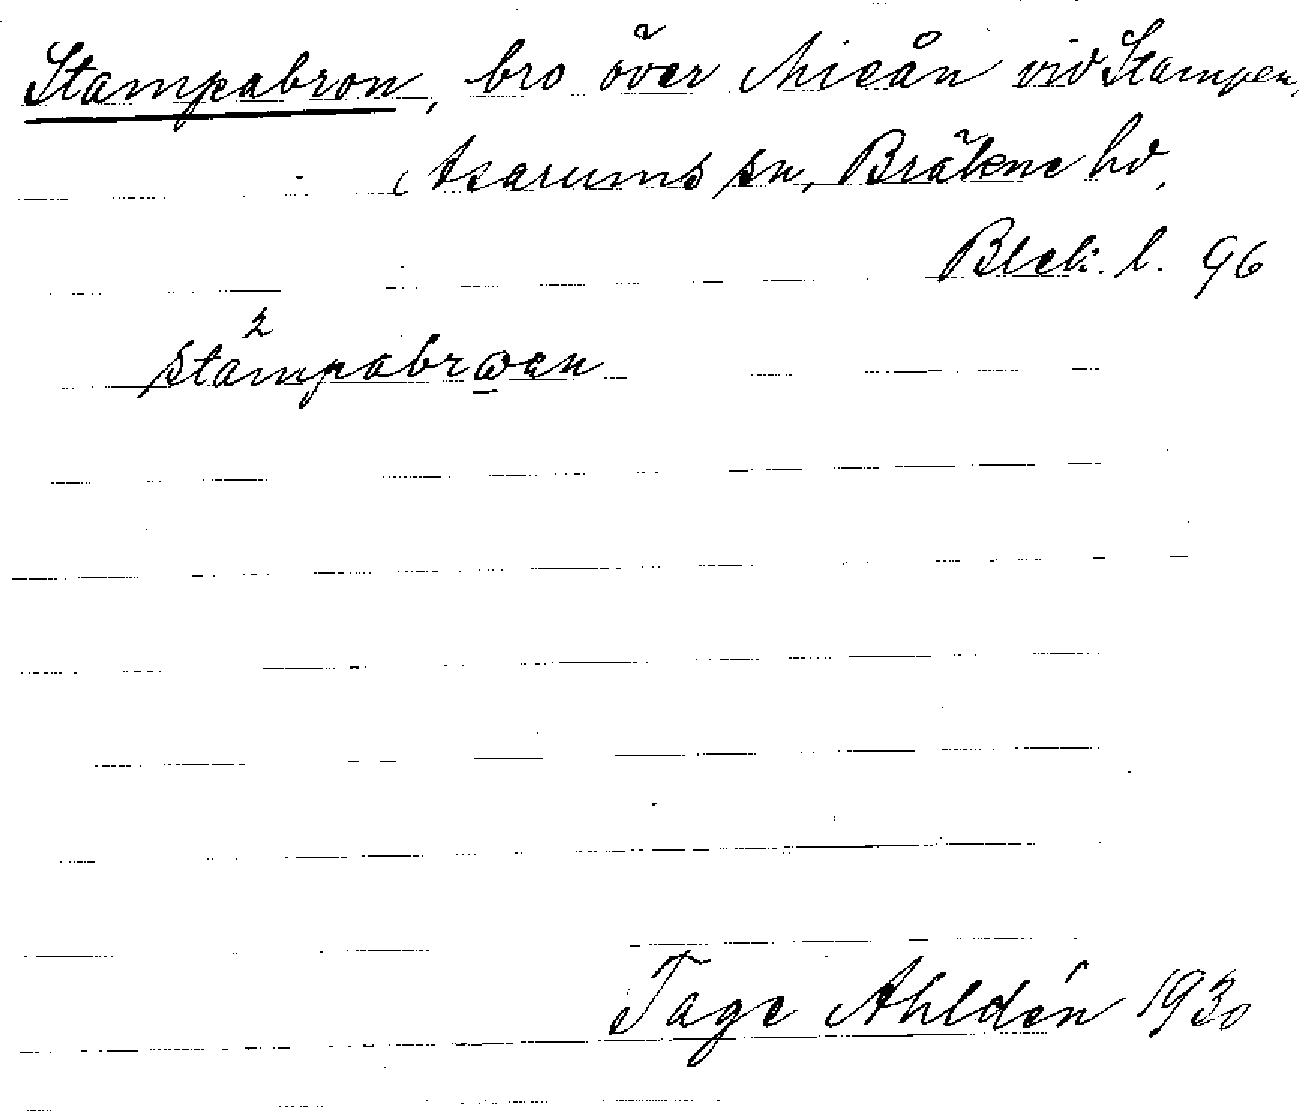 Stampabron, bro över Mieån vid Stampen,
Asarums sn, Bräkne hd,
Blek. l. 96
2
stampabrωen
Tage Ahldén 1930